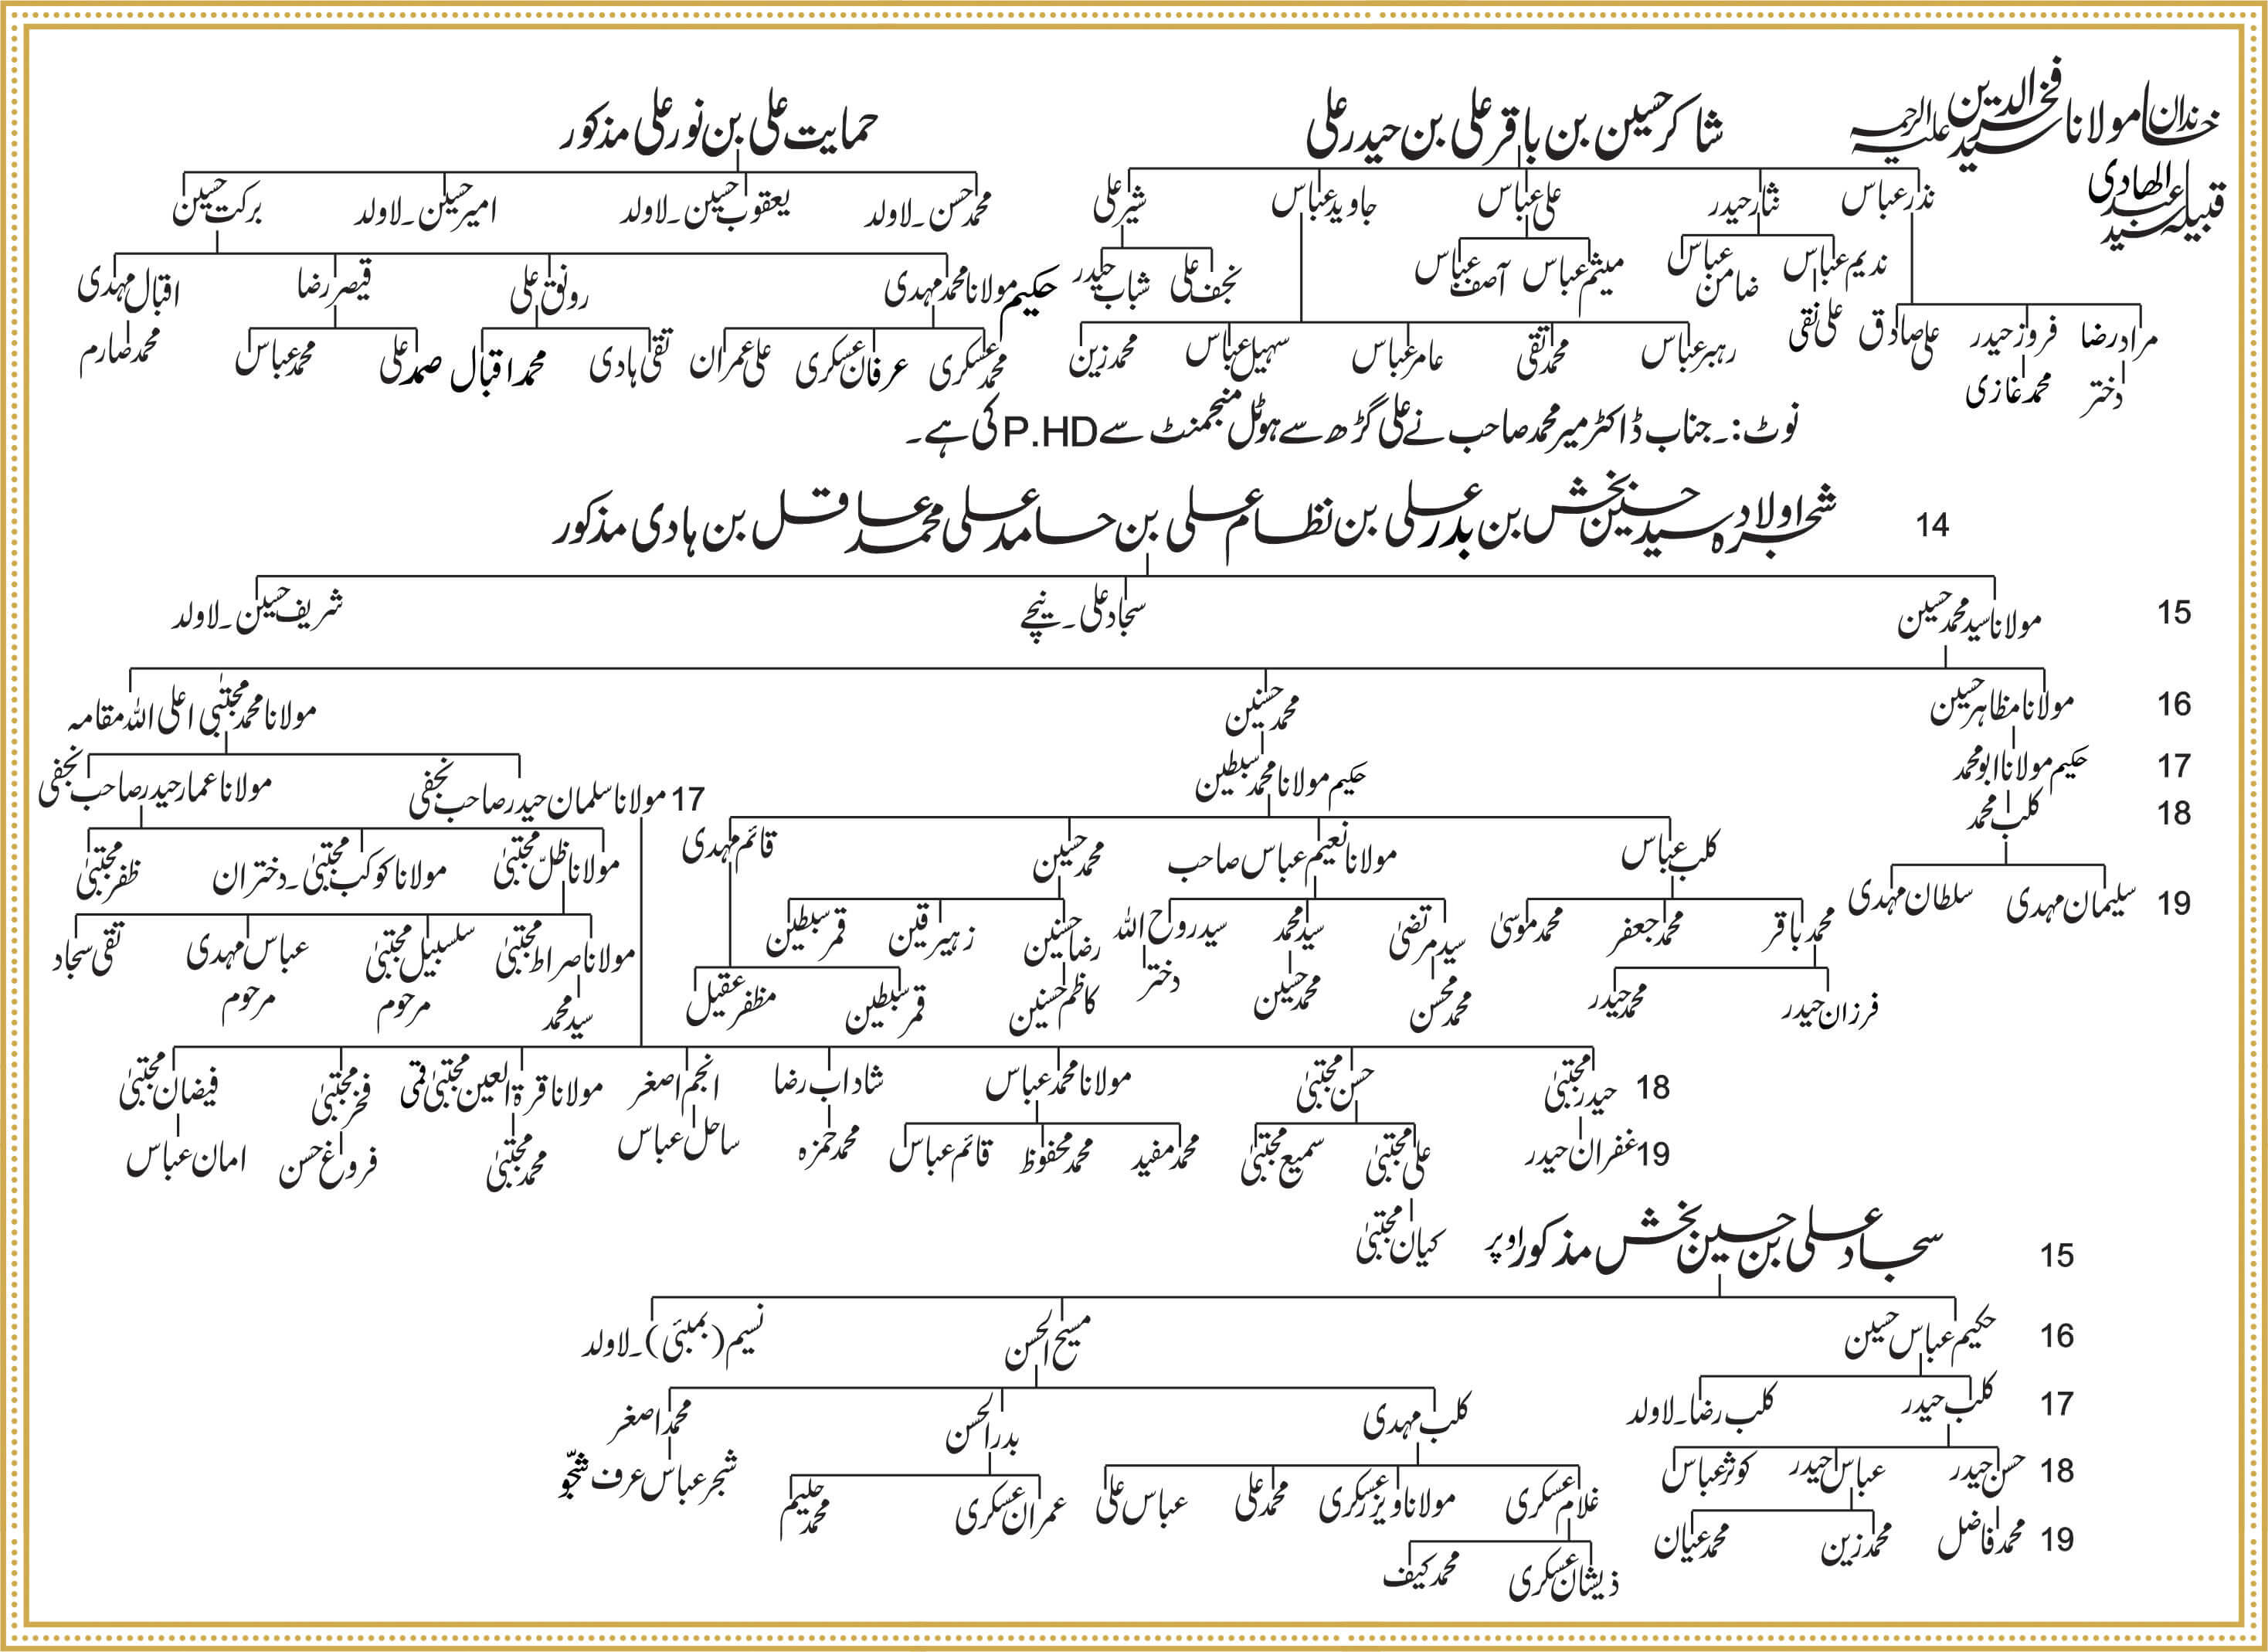 خاندان مولانا سید فخرالدین علیہ الرحمہ
قبیلہ سید عبدالھادی
شاکر حسین بن باقر علی بن حیدر علی
حمایت علی بن نور علی مذکور
نذر عباس
نثار حیدر
علی عباس
جاوید عباس
شیر علی
محمد حسن۔لاولد
یعقوب حسین۔لاولد
امیر حسین۔لاولد
برکت حسین
ندیم عباس
ضامن عباس
میثم عباس
آصف عباس
نجف علی
شباب حیدر
حکیم مولانا محمد مہدی
رونق علی
قیصر رضا
اقبال مہدی
مراد رضا
فروز حیدر
علی صادق
علی نقی
رہبر عباس
محمد تقی
عامر عباس
سہیل عباس
محمد زین
محمد عسکری
عرفان عسکری
علی عمران
تقی ہادی
محمد اقبال
صمد علی
محمد عباس
محمد صارم
دختر
محمد غازی
نوٹ:۔جناب ڈاکٹر میر محمد صاحب نے علی گڑھ سے ہوٹل منجمنٹ سے P.HD کی ہے۔
14 شجرہ اولاد سید حسین بخش بن بدر علی بن نظام علی بن حامد علی محمد عاقل بن ہادی مذکور
15 مولانا سید محمد حسین
سجاد علی۔نیچے
شریف حسین۔لاولد
16 مولانا مظاہر حسین
محمد حسنین
مولانا محمد مجتبیٰ اعلی اللہ مقامہ
17 حکیم مولانا ابو محمد
حکیم مولانا محمد سبطین
17 مولانا سلمان حیدر صاحب نجفی
مولانا عمار حیدر صاحب نجفی
18 کلب محمد
کلب عباس
مولانا نعیم عباس صاحب
محمد حسین
قائم مہدی
مولانا ظلّ مجتبیٰ
مولانا کوکب مجتبیٰ۔دختران
ظفر مجتبیٰ
19 سلیمان مہدی
سلطان مہدی
محمد باقر
محمد جعفر
محمد موسیٰ
سید مرتضیٰ
سید محمد
سید روح اللہ
رضا حسنین
زہیر قین
قمر سبطین
مولانا صراط مجتبیٰ
سلسبیل مجتبیٰ مرحوم
عباس مہدی مرحوم
تقی سجاد
فرزان حیدر
محمد حیدر
محمد محسن
محمد حسین
دختر
کاظم حسنین
قمر سبطین
مظفر عقیل
سید محمد
18 حیدر مجتبیٰ
حسن مجتبیٰ
مولانا محمد عباس
شاداب رضا
انجم اصغر
مولانا قرۃ العین مجتبیٰ قمی
فخر مجتبیٰ
فیضان مجتبیٰ
19 غفران حیدر
علی مجتبیٰ
سمیع مجتبیٰ
محمد مفید
محمد محفوظ
قائم عباس
محمد حمزہ
ساحل عباس
محمد مجتبیٰ
فروغ حسن
امان عباس
کیان مجتبیٰ
15 سجاد علی بن حسین بخش مذکور اوپر
16 حکیم عباس حسین
مسیح الحسن
نسیم (بمبئی)۔لاولد
17 کلب حیدر
کلب رضا۔لاولد
کلب مہدی
بدر الحسن
محمد اصغر
18 حسن حیدر
عباس حیدر
کوثر عباس
غلام عسکری
مولانا وزیر عسکری
محمد علی
عباس علی
عمران عسکری
محمد حلیم
شجر عباس عرف شجّو
19 محمد فاضل
محمد زین
محمد عیان
ذیشان عسکری
محمد کیف